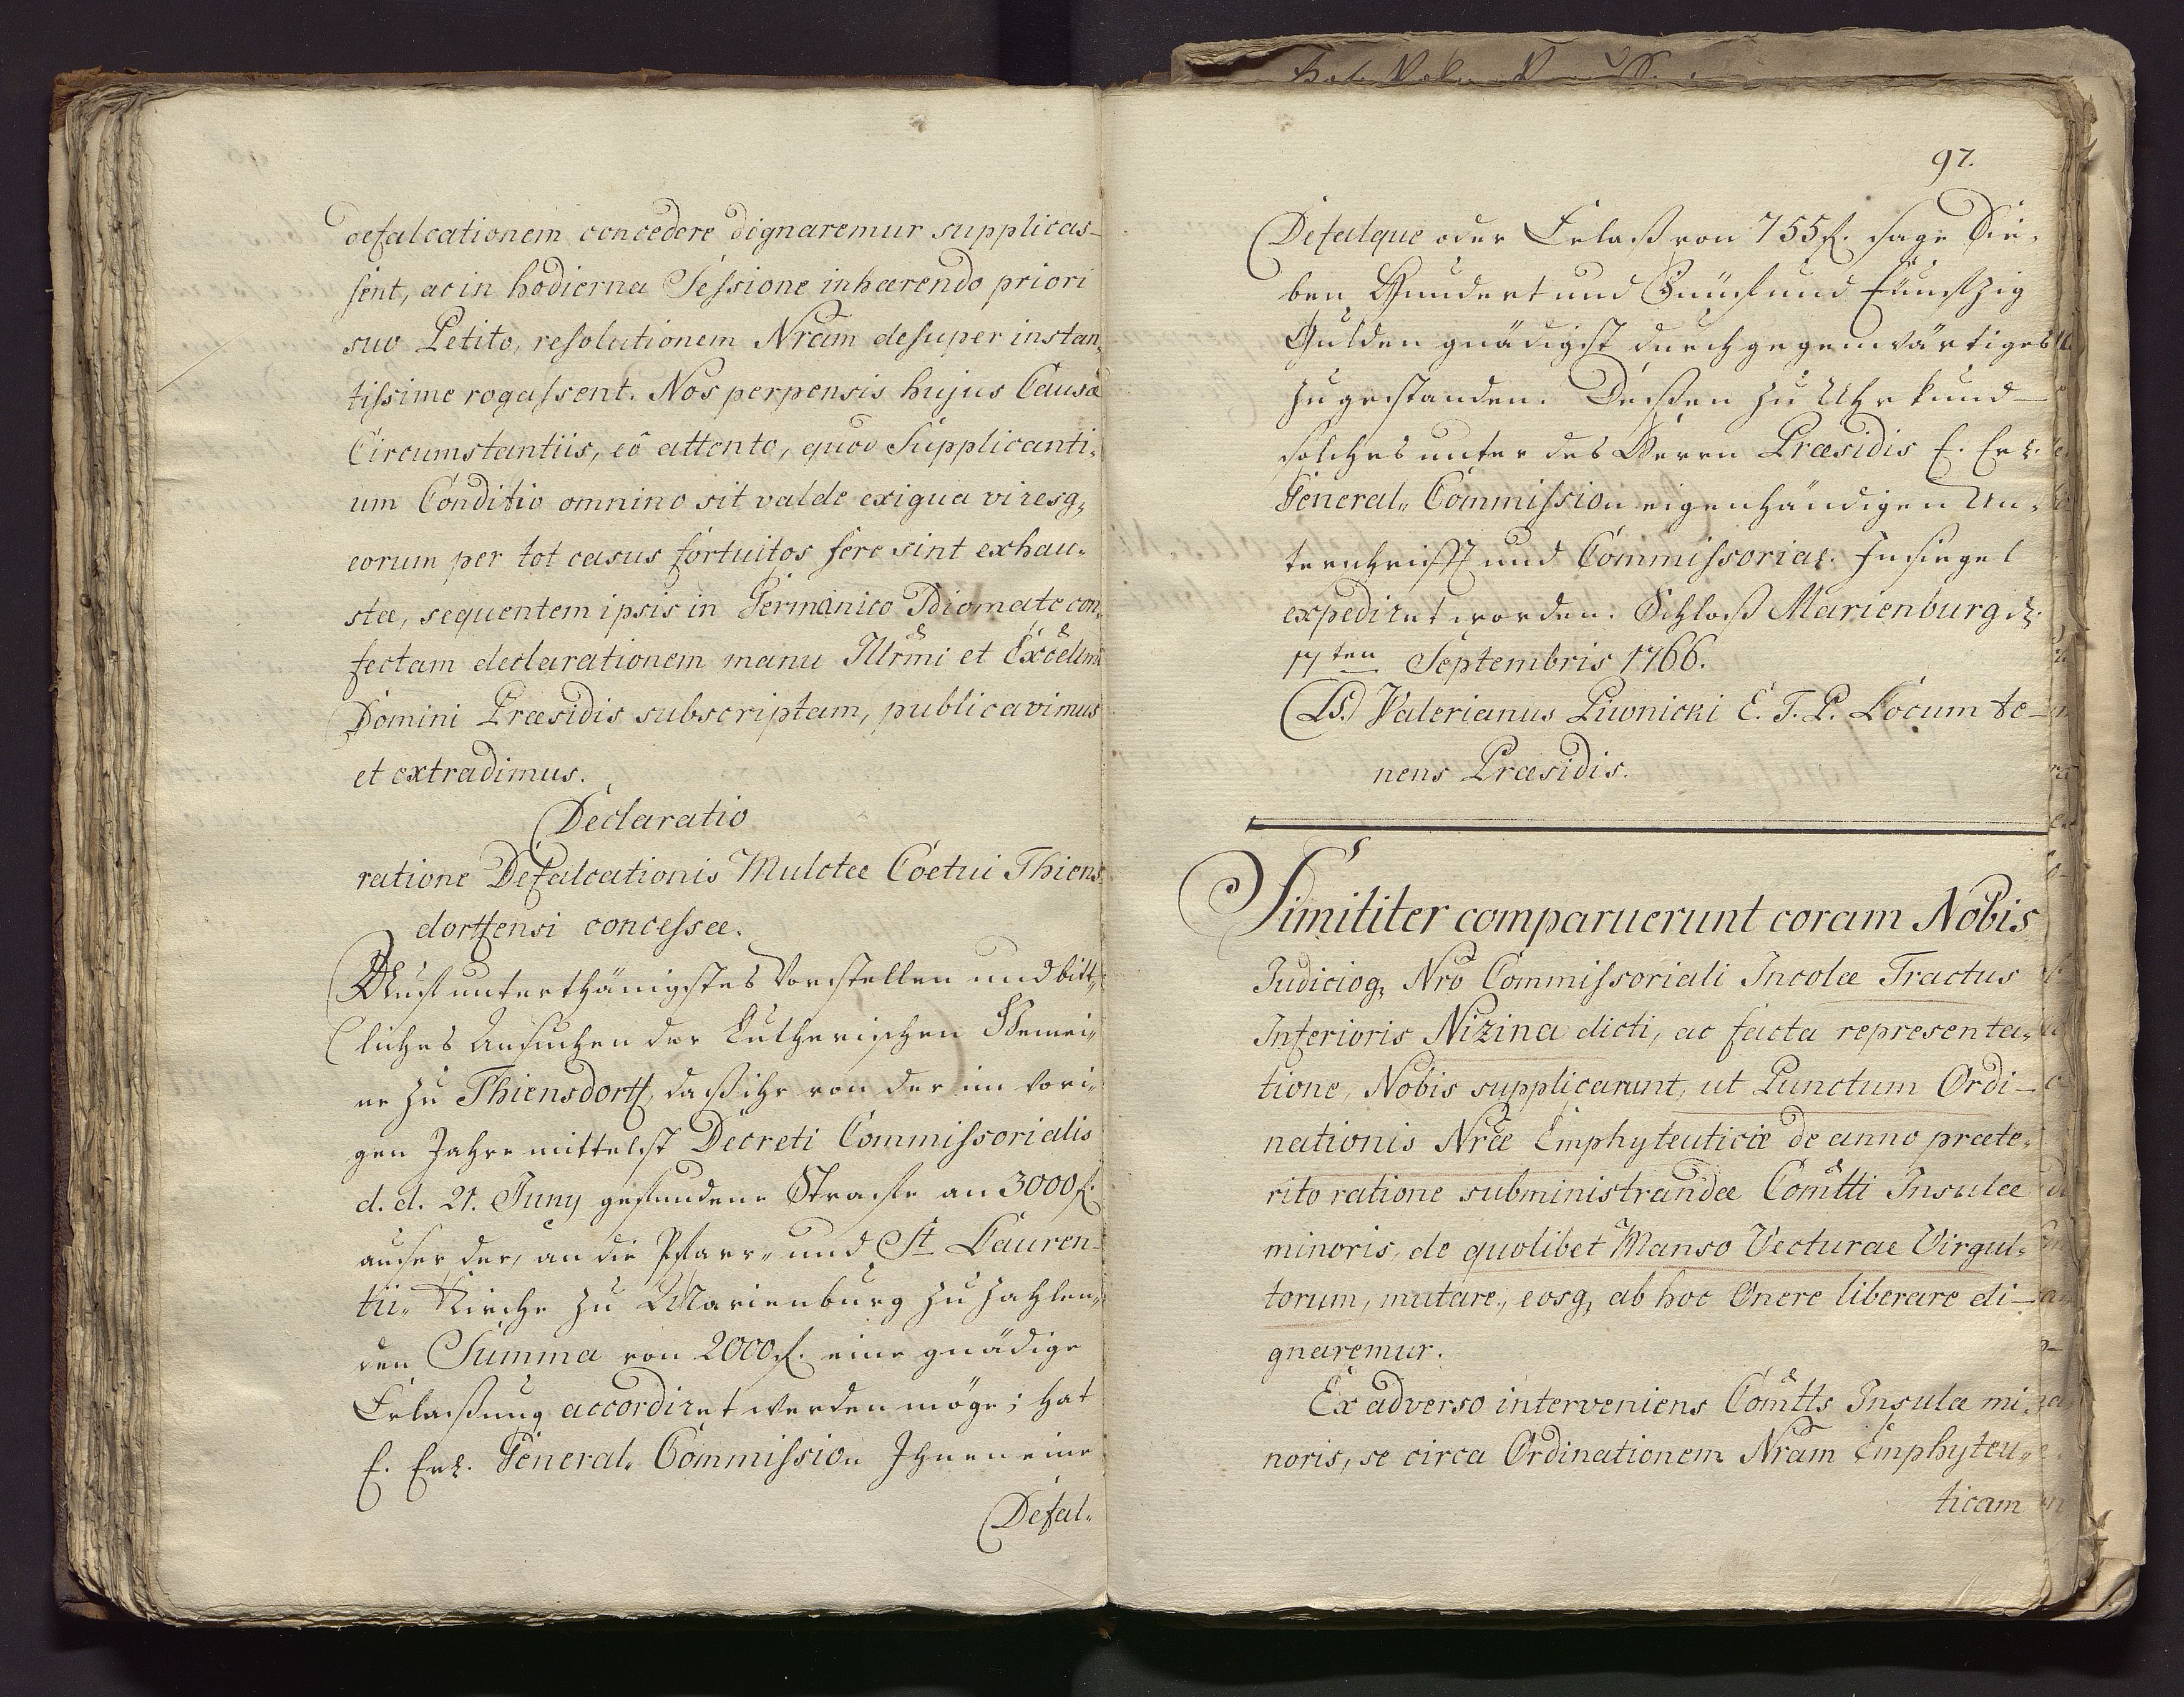 defalcationem concedere dignaremur supplicas-
sent, ac in hodierna Sessione inhærendo priori
suo Petito, resolutionem Nram desuper instan,,
tissime rogassent. Nos perpensis hujus Causæ
Circumstantiis, eô attento, quod Supplicanti,,
um Conditio omnino sit valde exigua viresq,
eorum per tot casus fortuitos fere sint exhau,,
stæ, sequentem ipsis in Germanico Idiomate con,,
fectam declarationem manu Illrmi et Excellmi
Domini Præsidis subscriptam, publicavimus
et extradimus.
Declaratio
ratione Defalcationis Mulctæ Coetui Thiens-
dorffensi concessæ.
Auf unterthänigstes Vorstellen und bitt,,
liches Ansuchen der Lutherischen Gemei,,
ne zu Thiensdorff, daß ihr von der im vori,,
gen Jahre mittelst Decreti Commissorialis
d. d. 21. Juny gefundene Straffe an 3000 f.
außer der, an die Pfarr,, und St. Lauren-
tii,, Kirche zu Marienburg zu zahlen,,
den Summa von 2000 f. eine gnädige
Erlaßung accordiret werden möge; hat
E. Erl. General,, Commission Ihnen eine
Defal,,
97.
Defalque oder Erlaß von 755 f. sage Sie,,
ben Hundert und Fünf und Fünfzig
Gulden gnädigst durch gegenwärtiges
zugestanden. Deßen zu Uhrkund
solches unter des Herrn Præsidis E. Erl.
General,, Commission eigenhändigen Un,,
terschrifft und Commissorial. Insiegel
expediret worden. Schloß Marienburg d.
17ten Septembris 1766.
(LS.) Valerianus Piwnicki E. T. P. Locum te-
nens Præsidis.
Similiter comparuerunt coram Nobis
Judicioq, Nrô Commissoriali Incolæ Tractus
Inferioris Nizina dicti, ac facta representa,,
tione, Nobis supplicarunt, ut Punctum Ordi-
nationis Nræ Emphyteuticæ de anno præte,,
rito ratione subministrandæ Comtti Insulæ
minoris, de quolibet Manso Vecturae Virgul,,
torum, mutare, eosq, ab hoc Onere liberare di-
gnaremur.
Ex adverso interveniens Comtts Insulæ mi,,
noris, se circa Ordinationem Nram Emphyteu,,
ticam